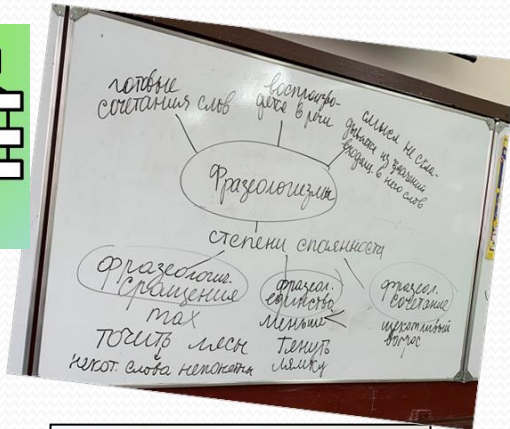 готовые
сочетания слов
воспроизво-
дятся в речи
смысл не скла-
дывается из значений
входящ. в него слов
Фразеологизмы
степени спаянности
фразеологич.
сращения
max
точить лясы
некот. слова непонятны
фразеол.
единства
меньше
тянуть
лямку
фразеол.
сочетание
щекотливый
вопрос